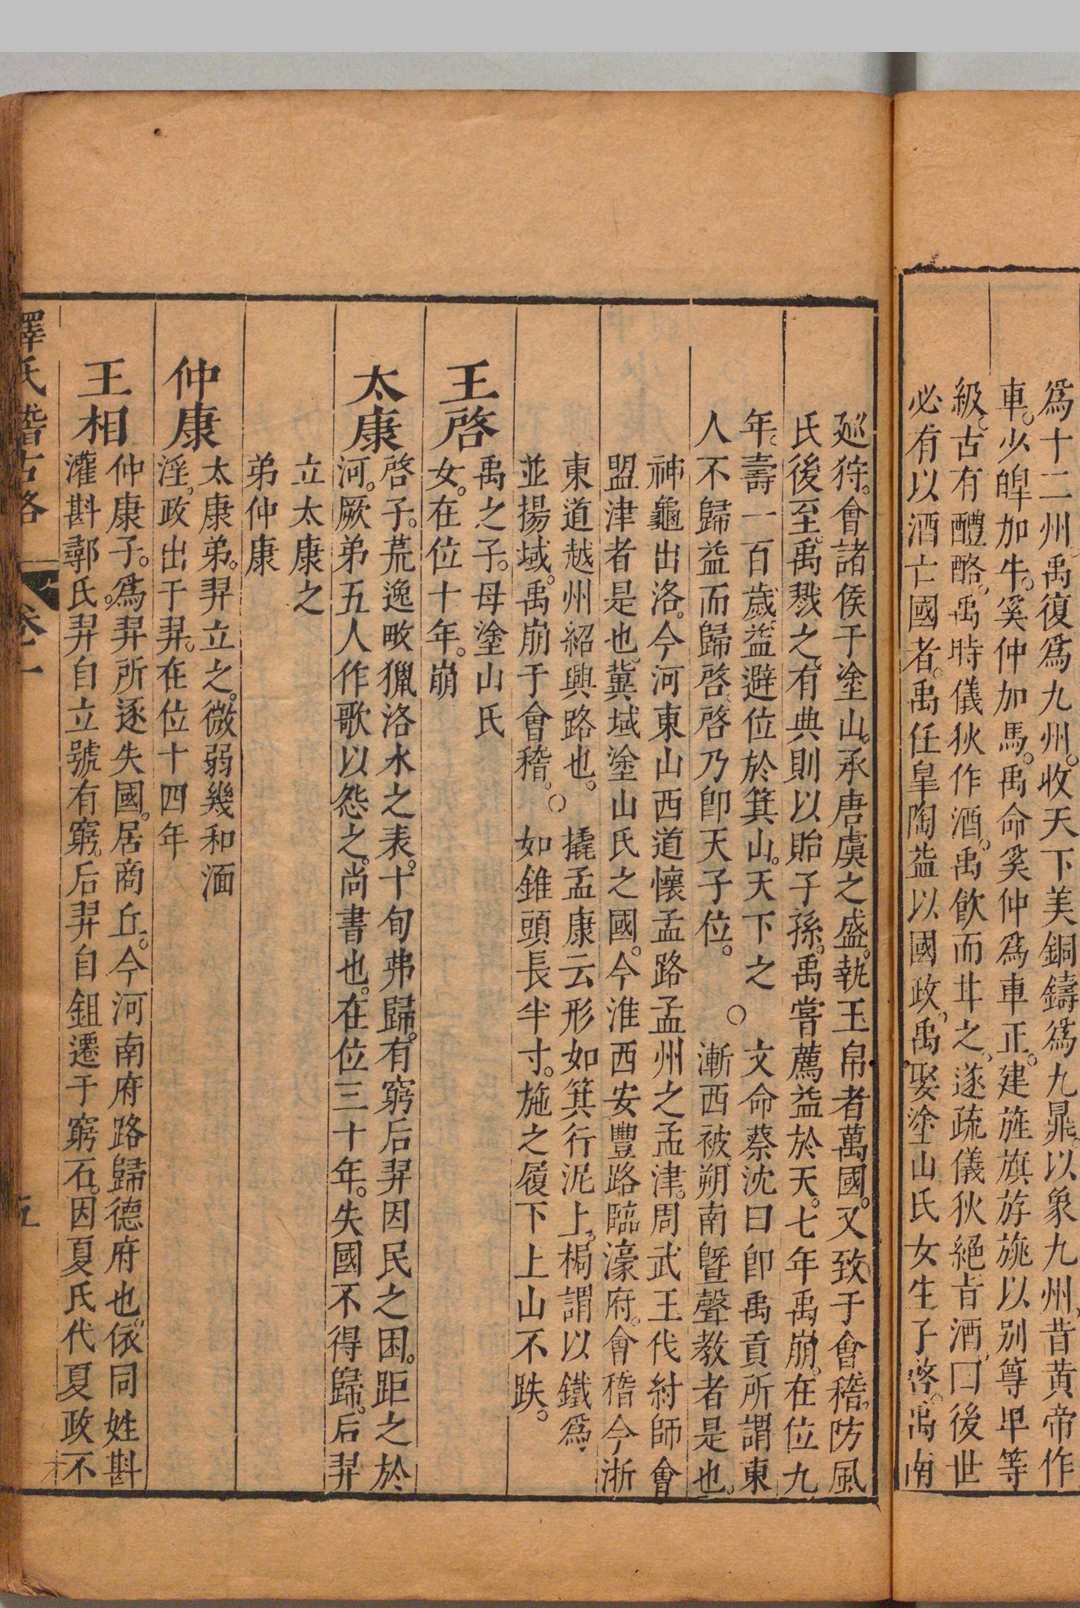 爲十二州禹復爲九州收天下美銅鑄爲九鼎以象九州昔黄帝作
車少皥加牛奚仲加馬禹命奚仲爲車正建旌旗斿旐以别尊卑等
級古有醴酪禹時儀狄作酒禹飲而甘之遂疏儀狄絶旨酒曰後世
必有以酒亡國者禹任臯陶益以國政禹娶塗山氏女生子啓禹南
廵狩會諸侯于塗山承唐虞之盛執玉帛者萬國又致于會稽防風
氏後至禹戮之有典則以貽子孫禹嘗薦益於天七年禹崩在位九
年壽一百歲益避位於箕山天下之○文命蔡沈曰卽禹貢所謂東
人不歸益而歸啓啓乃卽天子位漸西被朔南曁聲教者是也
神龜出洛今河東山西道懷孟路孟州之孟津周武王伐紂師會
盟津者是也冀域塗山氏之國今淮西安豐路臨濠府會稽今浙
東道越州紹興路也○橇孟康云形如箕行泥上梮謂以鐵爲
並揚域禹崩于會稽如錐頭長半寸施之履下上山不跌
王啓
禹之子母塗山氏
女在位十年崩
太康
啓子荒逸畋獵洛水之表十旬弗歸有窮后羿因民之困距之於
河厥弟五人作歌以怨之尚書也在位三十年失國不得歸后羿
立太康之
弟仲康
仲康
太康弟羿立之微弱幾和湎
淫政出于羿在位十四年
王相
仲康子爲羿所逐失國居商丘今河南府路歸德府也依同姓斟
灌斟鄩氏羿自立號有窮后羿自鉏遷于窮石因夏氏代夏政不
釋氏稽古略 卷一 五